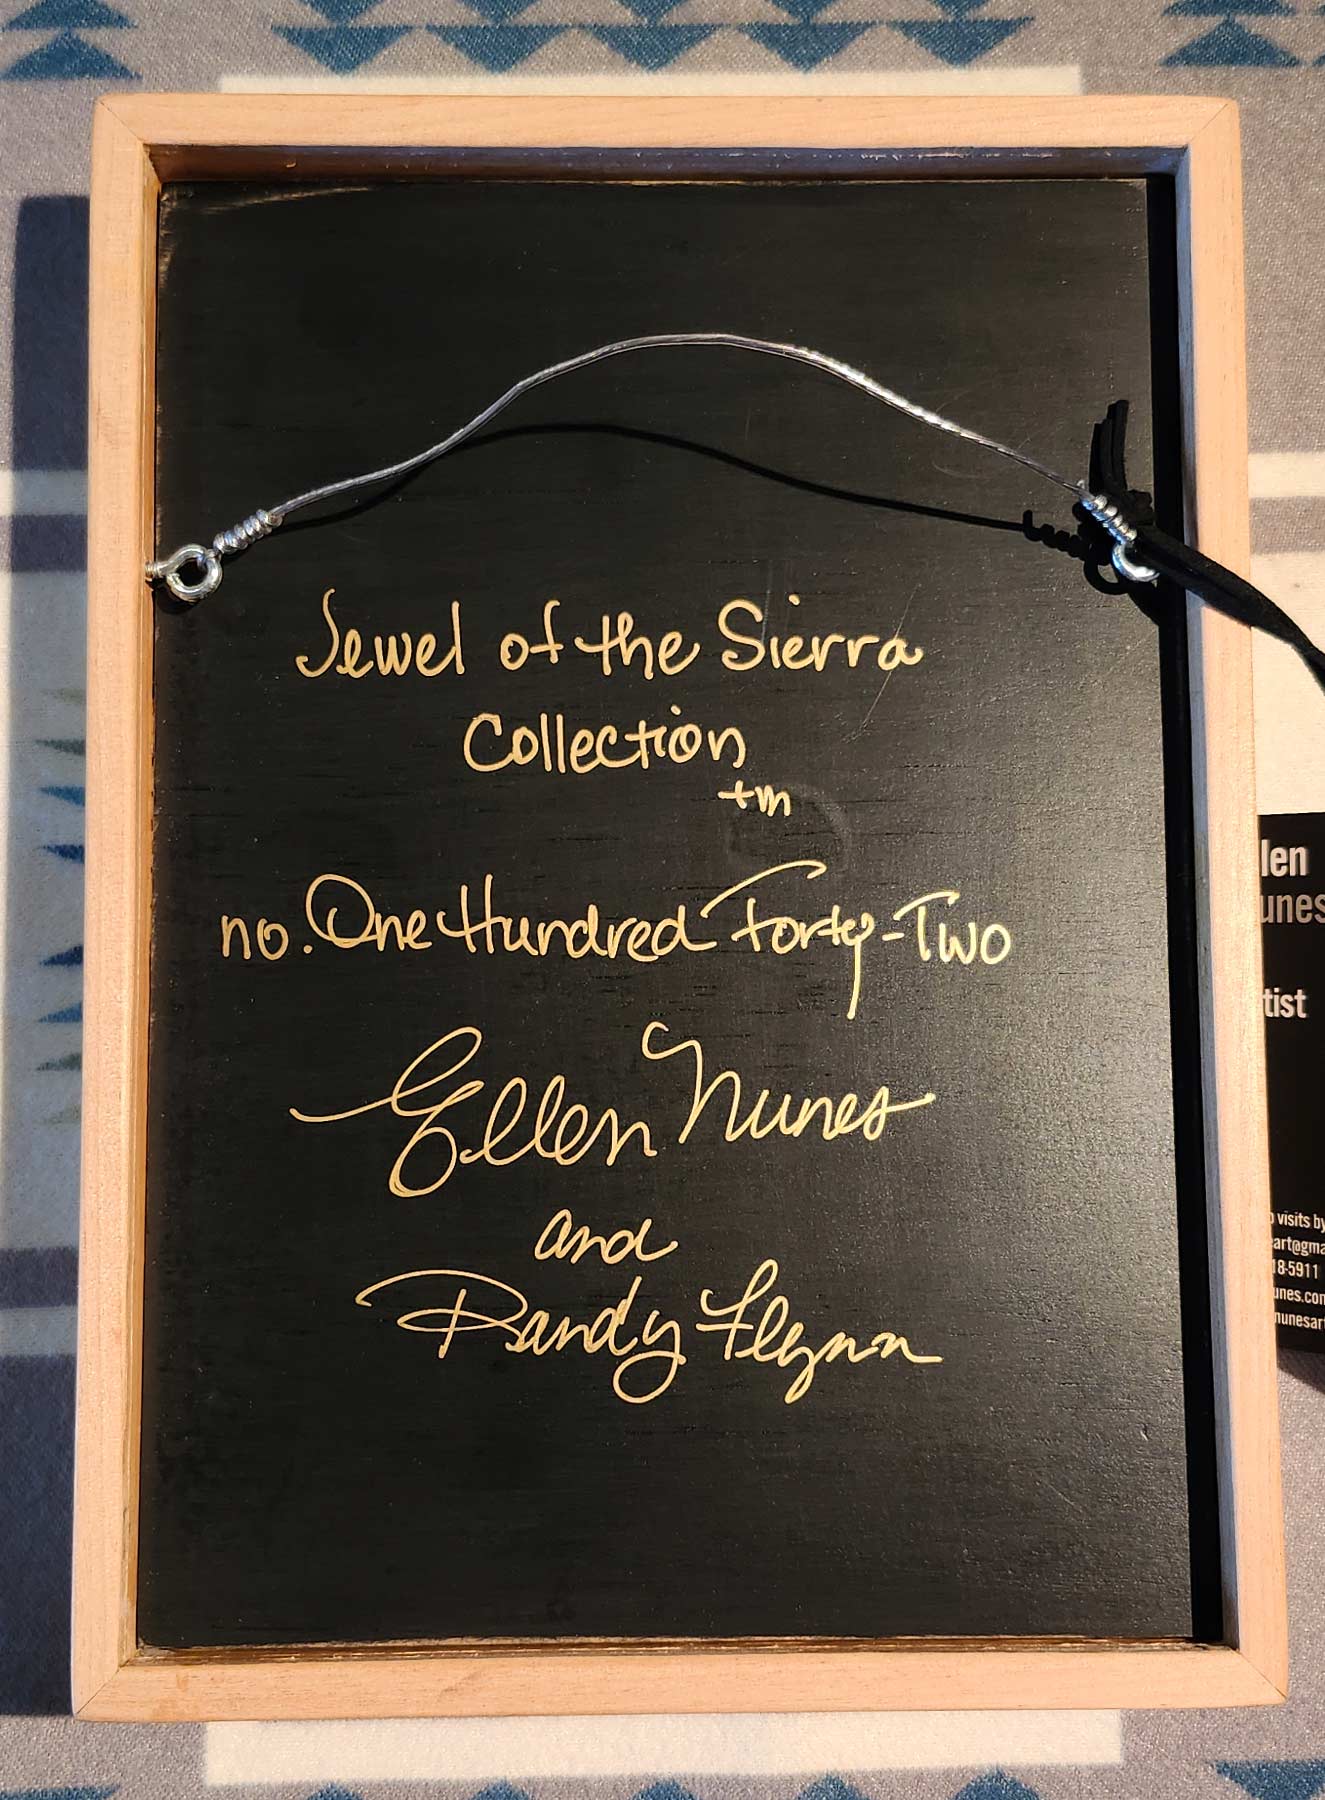 Jewel of the Sierra
Collection
tm
no. One Hundred Forty-Two
Ellen Nunes
and
Randy Flynn
len
unes
tist
visits by
eart@gma
18-5911
unes.com
nunesart